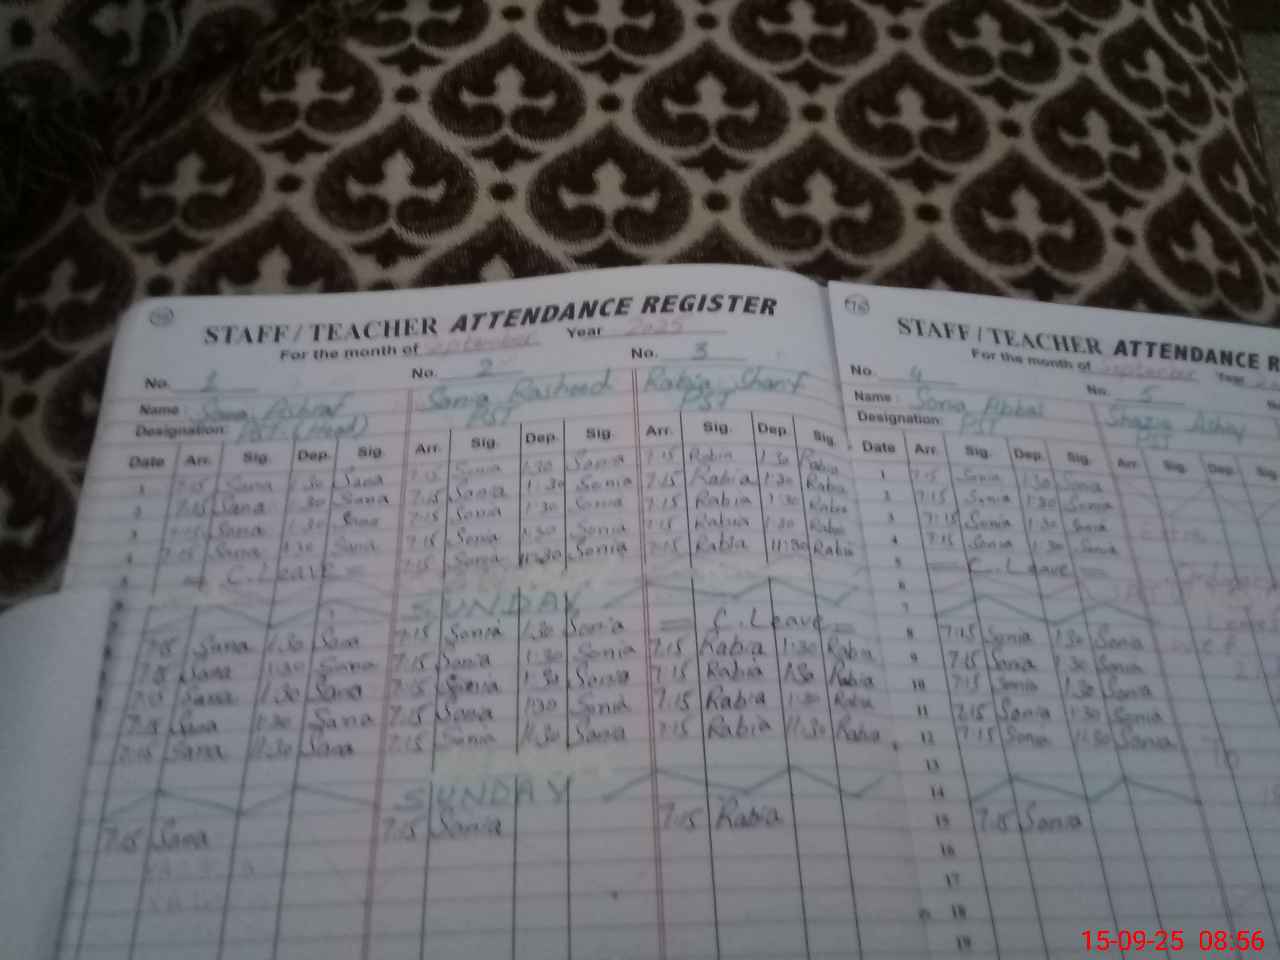 STAFF / TEACHER ATTENDANCE REGISTER
For the month of September Year 2025
No. 1 No. 2 No. 3
Name: Sana Ashraf Sonia Rasheed Rabia Sharif
Designation: PST (Head) PST PST
Date Arr. Sig. Dep. Sig Arr. Sig. Dep. Sig. Arr. Sig. Dep. Sig.
1 7:15 Sana 1:30 Sana 7:15 Sonia 1:30 Sonia 7:15 Rabia 1:30 Rabia
2 7:15 Sana 1:30 Sana 7:15 Sonia 1:30 Sonia 7:15 Rabia 1:30 Rabia
3 7:15 Sana 1:30 Sana 7:15 Sonia 1:30 Sonia 7:15 Rabia 1:30 Rabia
4 7:15 Sana 1:30 Sana 7:15 Sonia 1:30 Sonia 7:15 Rabia 1:30 Rabia
5 = C. Leave = 7:15 Sonia 11:30 Sonia 7:15 Rabia 11:30 Rabia
SUNDAY
7:15 Sana 1:30 Sana 7:15 Sonia 1:30 Sonia = C. Leave =
7:15 Sana 1:30 Sana 7:15 Sonia 1:30 Sonia 7:15 Rabia 1:30 Rabia
7:15 Sana 1:30 Sana 7:15 Sonia 1:30 Sonia 7:15 Rabia 1:30 Rabia
7:15 Sana 1:30 Sana 7:15 Sonia 1:30 Sonia 7:15 Rabia 1:30 Rabia
7:15 Sana 11:30 Sana 7:15 Sonia 11:30 Sonia 7:15 Rabia 11:30 Rabia
SUNDAY
7:15 Sana 7:15 Sonia 7:15 Rabia
76
STAFF / TEACHER ATTENDANCE R
For the month of September Year
No. 4 No. 5
Name: Sonia Abbas Shazia
Designation: PST PST
Date Arr. Sig. Dep. Sig. Arr Sig. Dep. Sig
1 7:15 Sonia 1:30 Sonia
2 7:15 Sonia 1:30 Sonia
3 7:15 Sonia 1:30 Sonia
4 7:15 Sonia 1:30 Sonia
5 = C. Leave =
6
7
8 7:15 Sonia 1:30 Sonia
9 7:15 Sonia 1:30 Sonia
10 7:15 Sonia 1:30 Sonia
11 7:15 Sonia 1:30 Sonia
12 7:15 Sonia 11:30 Sonia
13
14
15 7:15 Sonia
16
17
18
19
15-09-25 08:56